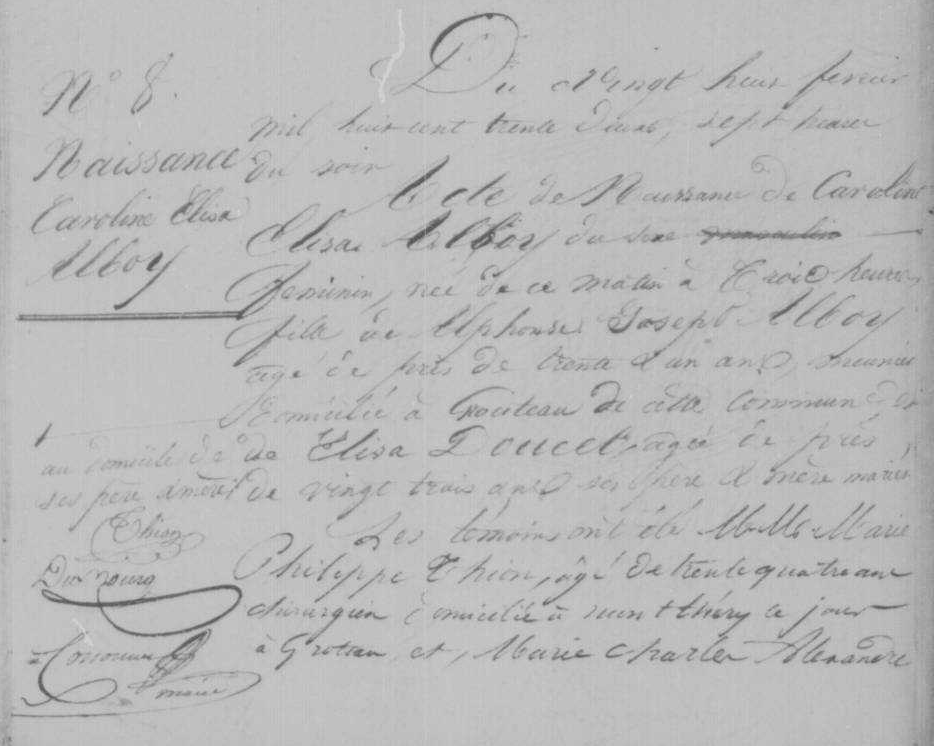 N° 8.
Naissance
Caroline Elisa
Alboy
au domicile de
ses père & mère
Thion
maire
Du vingt huit fevrier
mil huit cent trente deux, sept heures
du soir
Acte de Naissance de Caroline
Elisa Alboy du sexe masculin
feminin, née de ce matin à Trois heures
fille de Alphonse Joseph Alboy
agé de près de trente & un ans, meunier
Domicilié à de cette commune, et
de Elisa Doucet, agée de près
de vingt trois ans ses père & mère mariés
Les témoins ont été MM. Marie
Philippe Thion, âgé de trente quatre ans
chirurgien domicilié à ce jour
à et, Marie Charles Alexandre